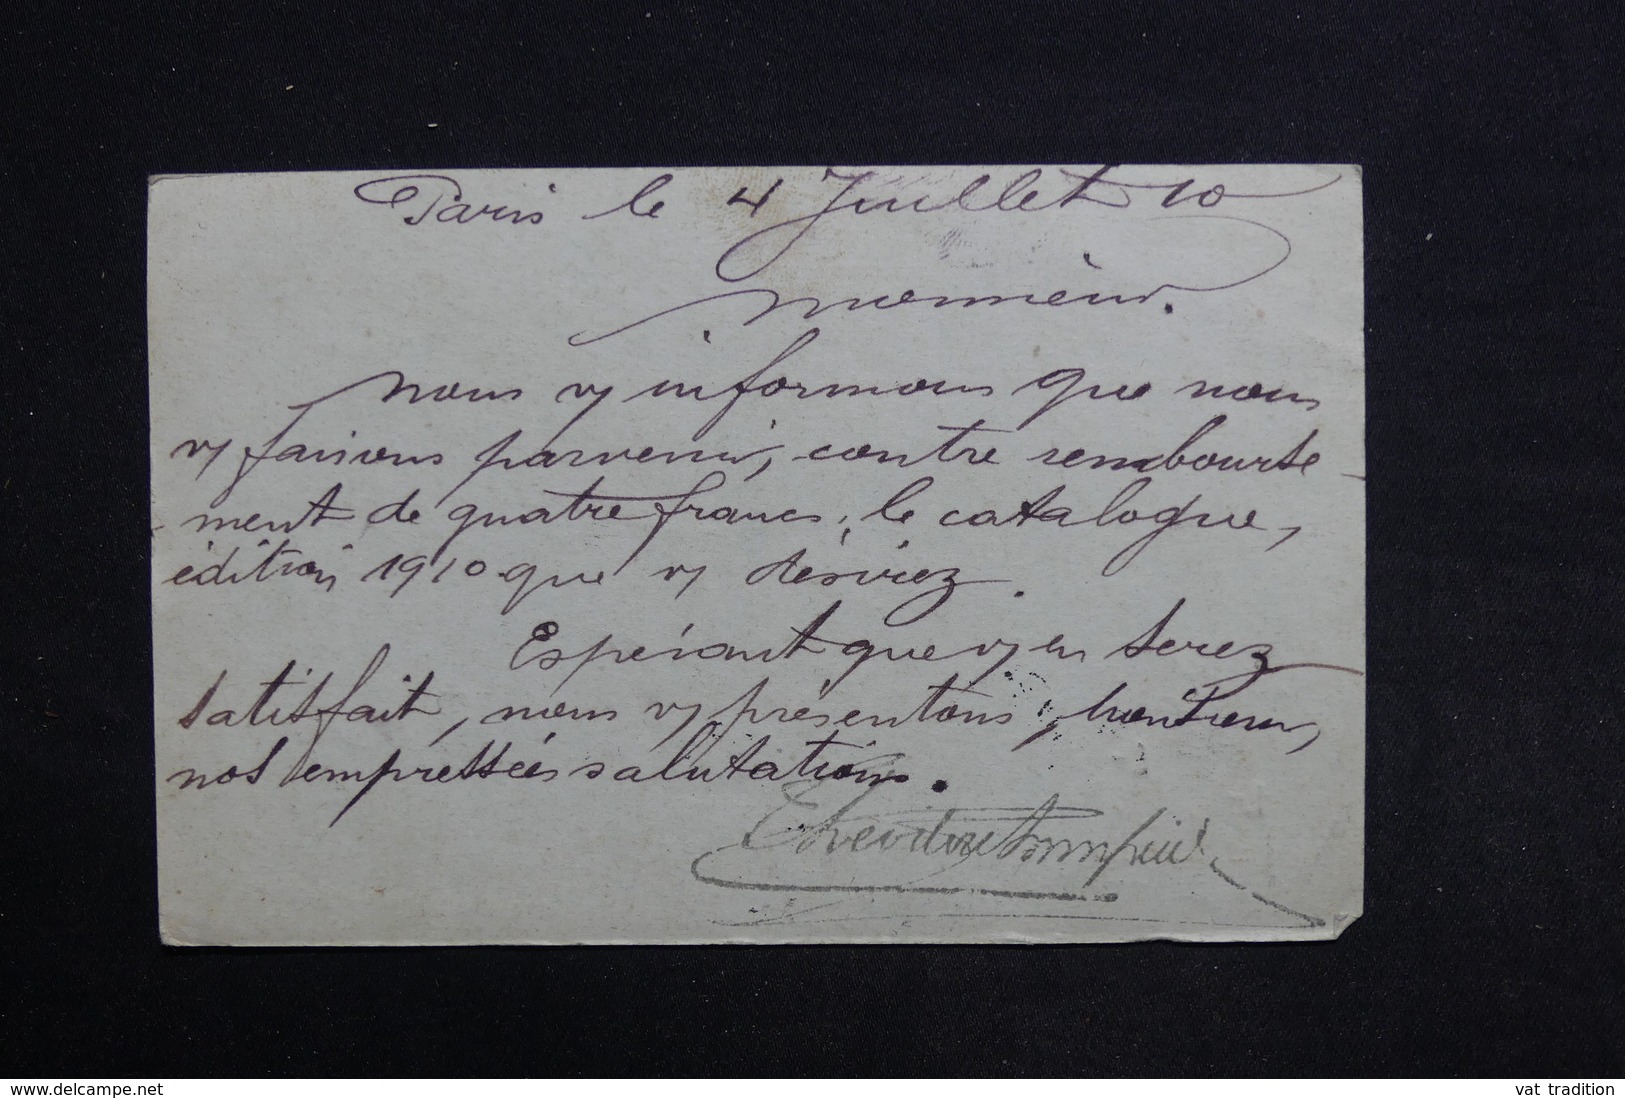 Paris le 4 Juillet 10
Monsieur.
Nous vs informons que nous
vs faisons parvenir, contre rembourse
ment de quatre francs, le catalogue,
édition 1910 que vs désirez.
Espérant que vs en serez
satisfait, nous vs présentons, Monsieur,
nos empressées salutations.
www.delcampe.net
vat tradition